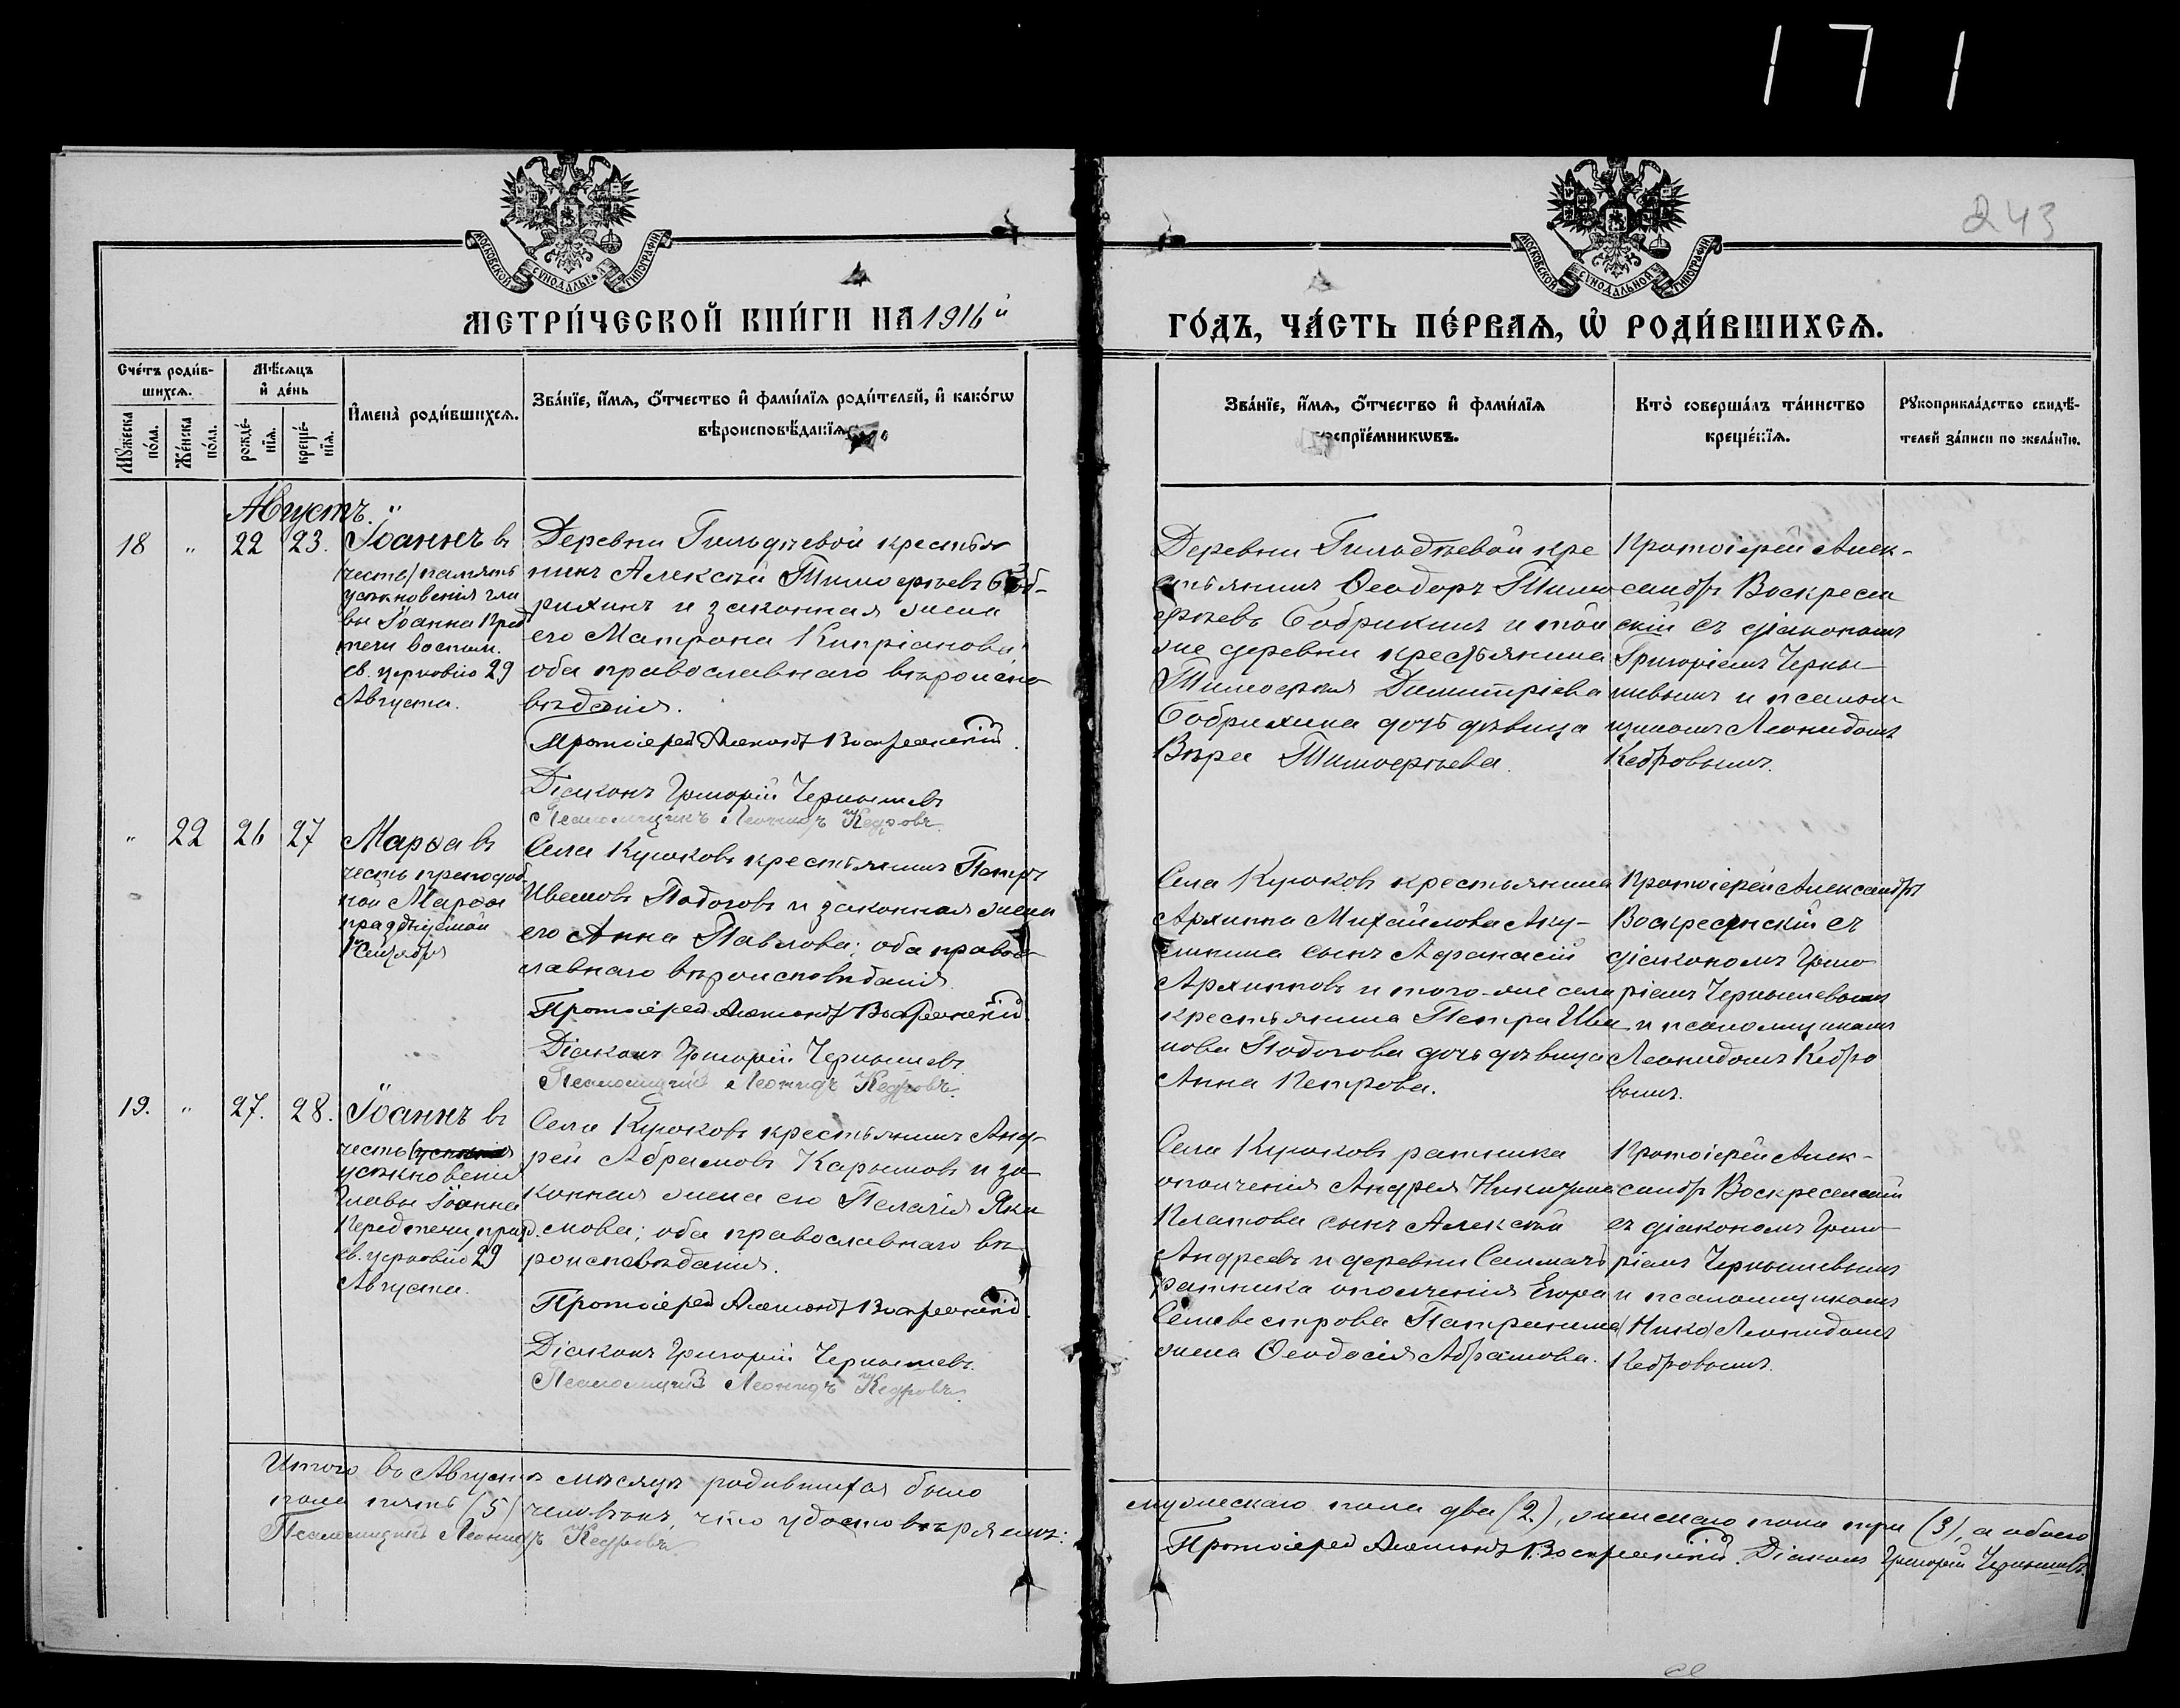 171
243
МОСКОВСКОЙ СѴНОДАЛЬНОЙ ТИПОГРАФІИ
МОСКОВСКОЙ СѴНОДАЛЬНОЙ ТИПОГРАФІИ
МЕТРИ́ЧЕСКОЙ КНИ́ГИ НА 1916й
ГО́ДЪ, ЧА́СТЬ ПЕ́РВАЯ, Ѡ҆ РОДИ́ВШИХСЯ.
Сче́тъ роди́в-
шихся.
Мѣ́сяцъ
и҆ де́нь
Мꙋ́жеска по́ла.
Же́нска по́ла.
рожде́-
нїя.
креще́-
нїя.
И҆мена̀ роди́вшихся.
Зва́нїе, и҆́мя, ѻ҆́тчество и҆ фами́лїя роди́телей, и҆ како́гѡ
вѣроисповѣ́данїя.
Зва́нїе, и҆́мя, ѻ҆́тчество и҆ фами́лїя
воспрїе́мникѡвъ.
Кто̀ соверша́лъ та́инство
креще́нїя.
Рꙋкоприкла́дство свидѣ́-
телей за́писи по жела́нїю.
Августъ.
18 " 22 23.
Іоаннъ въ
честь/память
усѣкновенія гла
вы Іоанна Пред
течи воспом.
св. церковію 29
Августа.
Деревни Гильдѣевой крестья
нинъ Алексѣй Тимоѳѣевъ Боб-
рихинъ и законная жена
его Матрона Кипріанова
оба православнаго вѣроиспо
вѣданія.
Протоіерей Александръ Воскресенскій.
Діаконъ Григорій Чернышевъ
Псаломщикъ Леонидъ Кедровъ.
Деревни Гильдѣевой кре
стьянинъ Ѳеодоръ Тимо
ѳѣевъ Бобрихинъ и той
же деревни крестьянина
Тимоѳея Димитріева
Бобрихина дочь дѣвица
Вѣра Тимоѳѣева.
Протоіерей Алек-
сандръ Воскресен
скій съ діакономъ
Григоріемъ Черны
шевымъ и псалом
щикомъ Леонидомъ
Кедровымъ.
" 22 26 27
Марѳа въ
честь преподоб
ной Марѳы
празднуемой
1 Сентября
Села Куюковъ крестьянинъ Петръ
Ивановъ Подоговъ и законная жена
его Анна Павлова; оба право
славнаго вѣроисповѣданія.
Протоіерей Александръ Воскресенскій.
Діаконъ Григорій Чернышевъ
Псаломщикъ Леонидъ Кедровъ.
Села Куюковъ крестьянина
Архиппа Михайлова Аку-
сынъ Аѳанасій
Архипповъ и того-же села
крестьянина Петра Ива
нова Подогова дочь дѣвица
Анна Петрова.
Протоіерей Александръ
Воскресенскій съ
діакономъ Григо
ріемъ Чернышевымъ
и псаломщикомъ
Леонидомъ Кедро
вымъ.
19. " 27. 28.
Іоаннъ въ
честь
усѣкновенія
главы Іоанна
Передтечи, празд.
св. церковію 29
Августа.
Села Куюковъ крестьянинъ Анд-
рей Абрамовъ Карымовъ и за
конная жена его Пелагія Яки
мова; оба православнаго вѣ
роисповѣданія.
Протоіерей Александръ Воскресенскій.
Діаконъ Григорій Чернышевъ.
Псаломщикъ Леонидъ Кедровъ.
Села Куюковъ ратника
ополченія Андрея Никитина
Платова сынъ Алексѣй
Андреевъ и деревни
ратника ополченія Егора
Сильвестрова
жена Ѳеодосія Абрамова.
Протоіерей Алек-
сандръ Воскресенскій
съ діакономъ Григо
ріемъ Чернышевымъ
и псаломщикомъ
Леонидомъ
Кедровымъ.
Итого въ Августѣ мѣсяцѣ родившихся было
мужескаго пола два (2), женскаго пола три (3), а обоего
пола пять (5) человѣкъ, что удостовѣряемъ:
Протоіерей Александръ Воскресенскій. Діаконъ Григорій Чернышевъ.
Псаломщикъ Леонидъ Кедровъ.